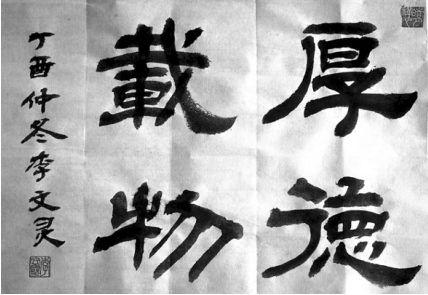 厚德
載物
丁酉仲冬李文灵